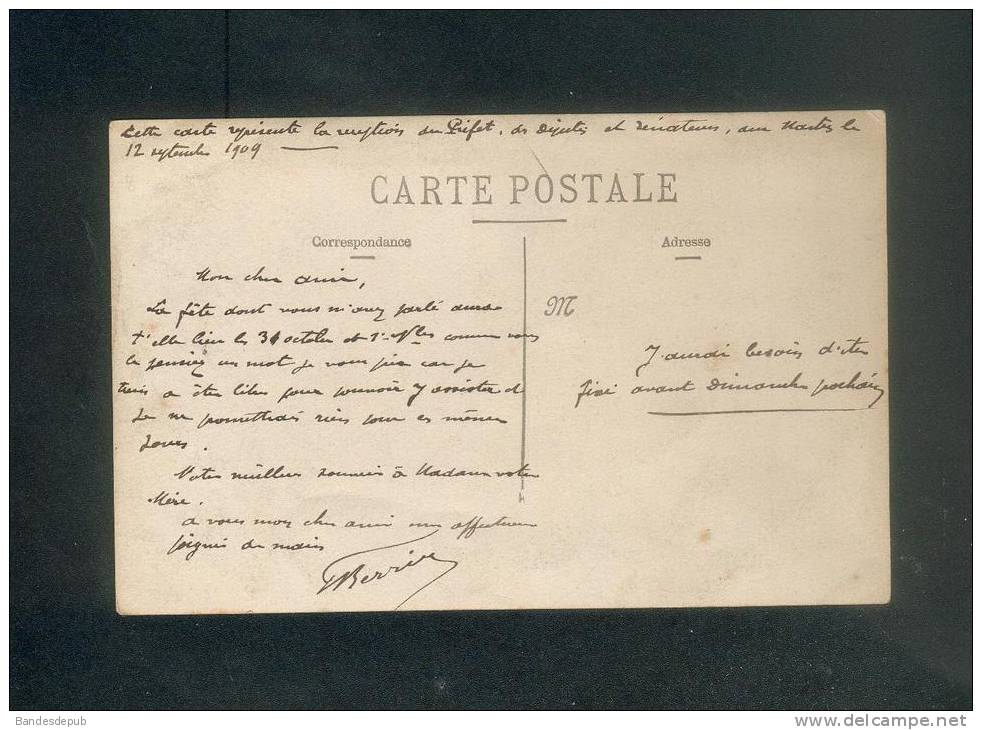 Cette carte représente la réception du Préfet, des députés et Sénateurs, aux Martys le
12 septembre 1909
CARTE POSTALE
Correspondance
Adresse
Mon cher ami,
La fête dont vous m'avez parlé aura
t'elle lieu les 31 octobre et 1er 9bre comme vous
le pensiez un mot je vous prie car je
tiens a être libre pour pouvoir y assister et
Je ne promettrais rien pour ces mêmes
Jours.
Nos meilleurs souvenirs à Madame votre
Mère.
a vous mon cher ami une affectueuse
poignée de mains
M
J'aurai besoin d'être
fixé avant Dimanche prochain
Bandesdepub
www.delcampe.net